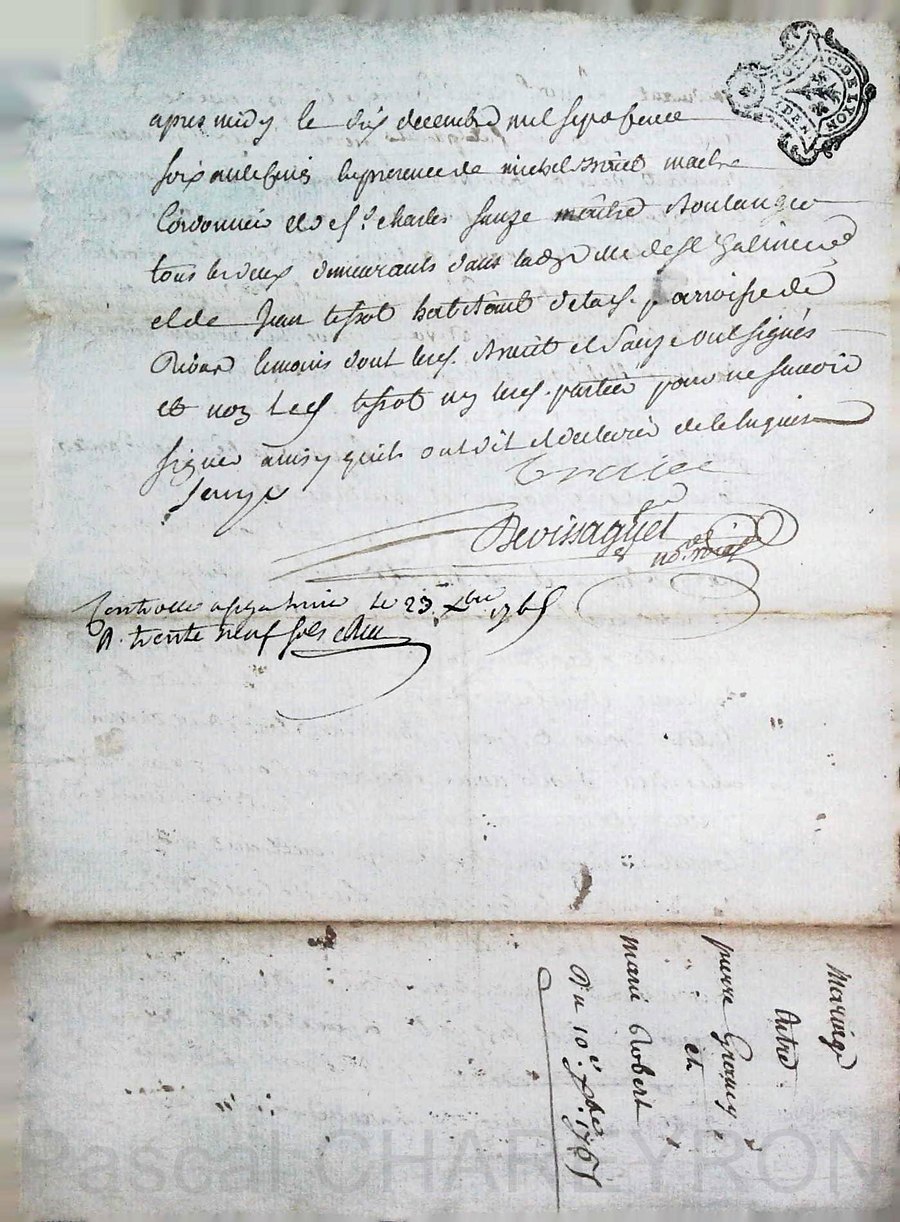 apres midy le dix decembre mil sept cent
soixante cinq en presence de michel Bruët maitre
Cordonnier et de s.r Charles Sauze maitre Boulanger
tous les deux demeurants dans la de St Galmier
et de Jean tissot habitant de la d. parroisse de
temoins dont les d. Bruët et Sauze ont signés
et non led. tissot ny lesd. parties pour ne scavoir
signer ainsy quils ont dit et declaré de ce enquis
Sauze
Devissaguet
no.re royal
Controllé a st galmier le 23 Xbre 1765
R. trente neuf sols
Mariage
Entre
pierre Grancy
et
marie Robert
Du 10.e Xbre 1765
G. DE LYON
Pascal CHAREYRON